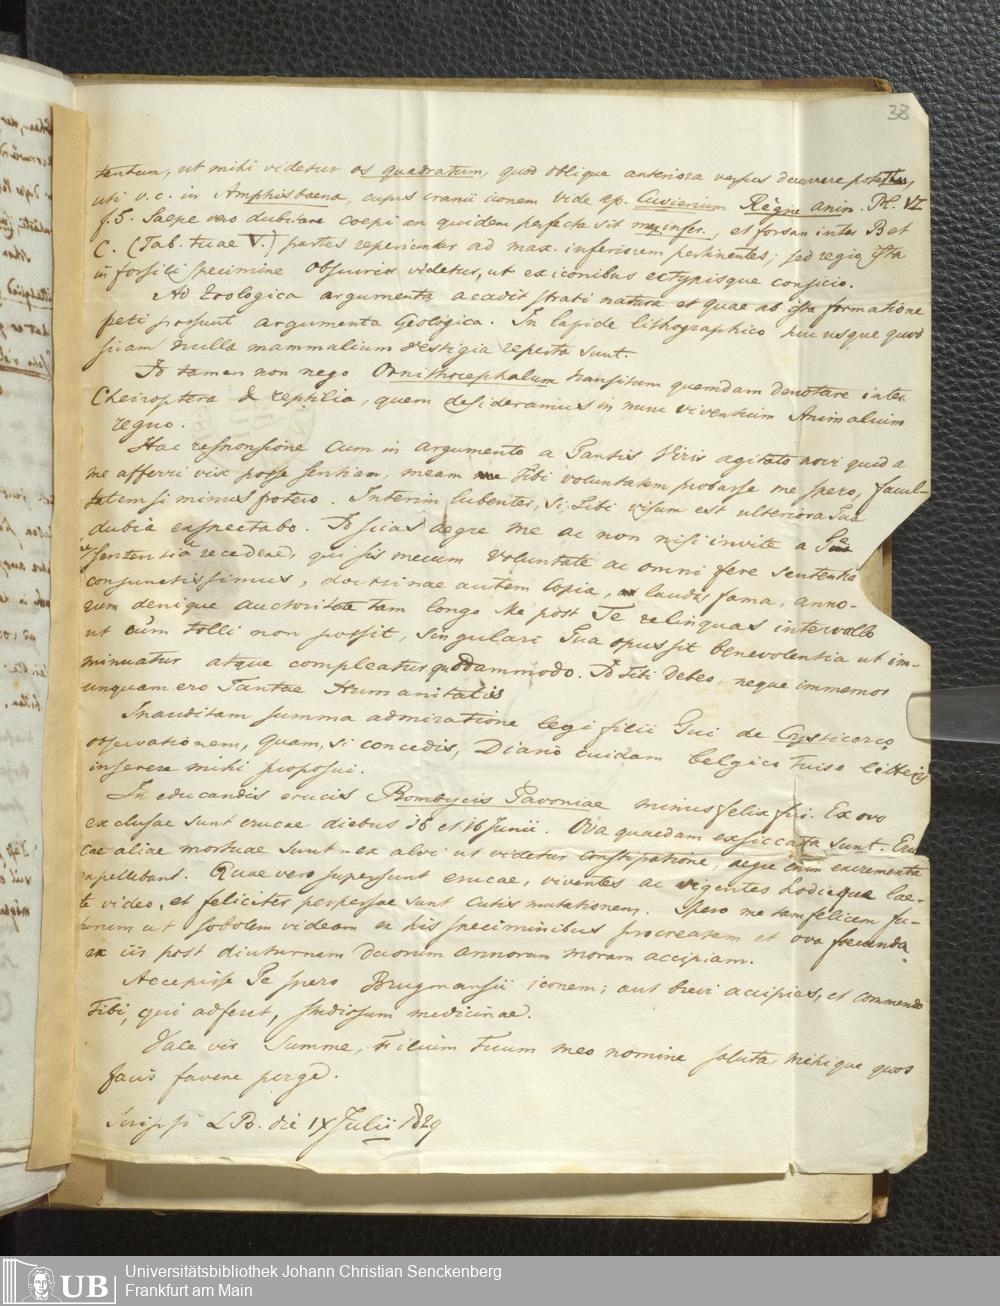 38
tentum, ut mihi videtur os quadratum, quod oblique anteriora versus decurrere
uti v.c. in Amphisbaena, cujus cranii iconem vide ap. Cuvierum Règne anim. Pl. VI
f. 5. Saepe vero dubitare coepi an quidem perfecta sit max. infer., et forsan inter B et
C. (Tab. tuae V.) partes reperientur ad max. inferiorem pertinentes; sed regio ista
in fossili specimine obscurior videtur, ut ex iconibus ectypisque conjicio.
Ad Zoologica argumenta accedit strati natura et quae ab ista formatione
peti possunt argumenta Geologica. In lapide lithographico huc usque quod
sciam nulla mammalium vestigia reperta sunt.
Io tamen non nego Ornithocephalum transitum quemdam denotare inter
Cheiroptera & reptilia, quem desideramus in nunc viventium Animalium
regno.
Hac responsione cum in argumento a Tantis Viris agitato novi quid a
me afferri vix posse sentiam, meam Tibi voluntatem probasse me spero, facul-
tatem si minus potero. Interim lubenter, si Tibi visum est ulteriora Tua
dubia exspectabo. Io scias aegre me ac non nisi invite a Tua
sententia recedere, qui sis mecum voluntate ac omni fere sententia
conjunctissimus, doctrinae autem copia, laudis fama, anno-
rum denique auctoritate tam longo Me post Te relinquas intervallo
ut cum tolli non possit, singulari Tua opus sit benevolentia ut im-
minuatur atque compleatur quodammodo. Io Tibi debeo, neque immemor
unquam ero Tantae Humanitatis
Inauditam summa admiratione legi filii Tui de Cysticerco
observationem, quam, si concedis, Diario cuidam belgico Tuis e litteris
inserere mihi proposui.
In educandis erucis Bombycis Pavoniae minus felix fui. Ex ovo
exclusae sunt erucae diebus 15 et 16 Junii. Ova quaedam exsiccata sunt. Eru
cae aliae mortuae sunt ex alvi ut videtur constipatione, aegre enim excrementa
expellebant. Quae vero supersunt erucae, viventes ac vigentes hodieque lae-
te video, et feliciter perpessae sunt cutis mutationem. Spero me tam felicem fu-
turum ut sobolem videam ex his speciminibus procreatam et ova foecunda
ex iis post diuturnam duorum annorum moram accipiam.
Accepisse Te spero Brugmansii iconem; aut brevi accipies, et commendo
Tibi, qui adferet, studiosum medicinae.
Vale vir Summe, Filium tuum meo nomine saluta, mihique quos
facis favere perge.
Scripsi L B. die IX Julii 1829
UB
Universitätsbibliothek Johann Christian Senckenberg
Frankfurt am Main